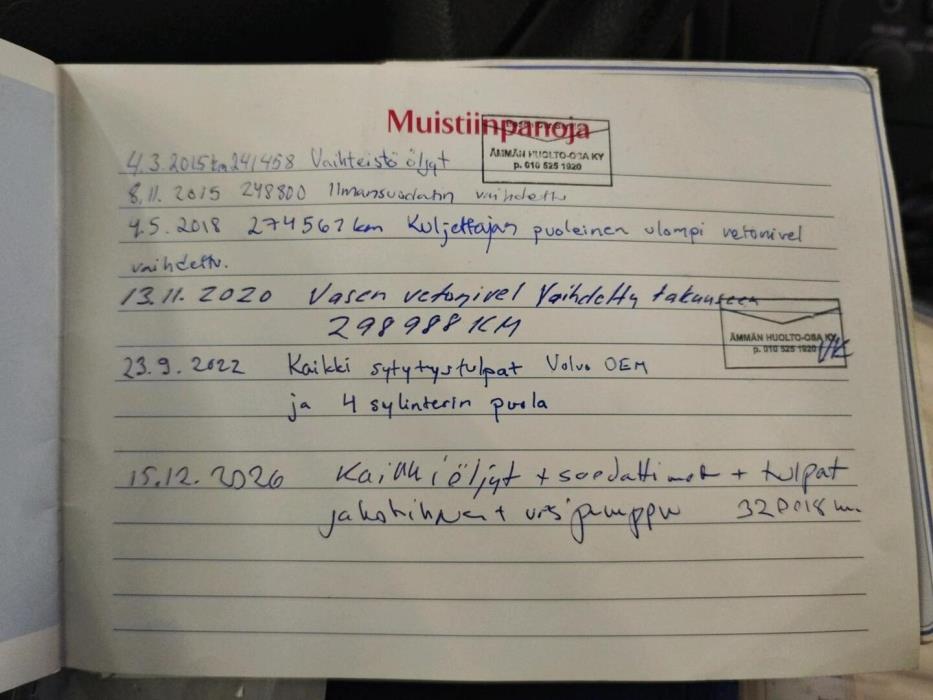 Muistiinpanoja
ÄMMÄN HUOLTO-OSA KY
p. 010 525 1920
4.3.2015 km 241458 Vaihteistö öljyt
8.11. 2015 248800 Ilmansuodatin vaihdettu
4.5.2018 274567 km Kuljettajan puoleinen ulompi vetonivel
vaihdettu.
13.11.2020 Vasen vetonivel Vaihdettu takuuseen
298988 KM
ÄMMÄN HUOLTO-OSA KY
p. 010 525 1920
23.9.2022 Kaikki sytytystulpat Volvo OEM
ja 4 sylinterin puola
15.12.2026 Kaikki öljyt + suodattimet + tulpat
jakohihna + vesipumppu 320018 km